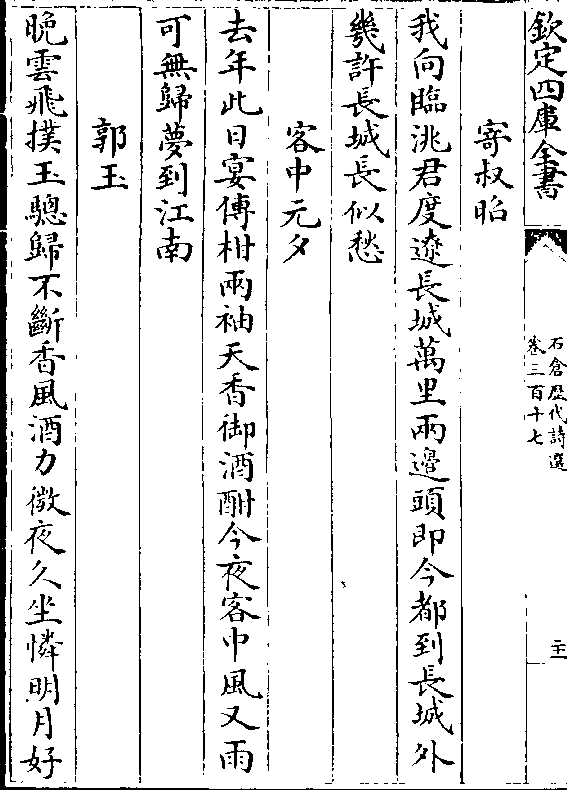 欽定四庫全書
石倉歷代詩選
卷三百十七
寄叔昭
我向臨洮君度遼長城萬里兩邊頭即今都到長城外
幾許長城長似愁
客中元夕
去年此日宴傳柑兩袖天香御酒酣今夜客中風又雨
可無歸夢到江南
郭玉
晩雲飛撲玉驄歸不斷香風酒力微夜久坐憐明月好